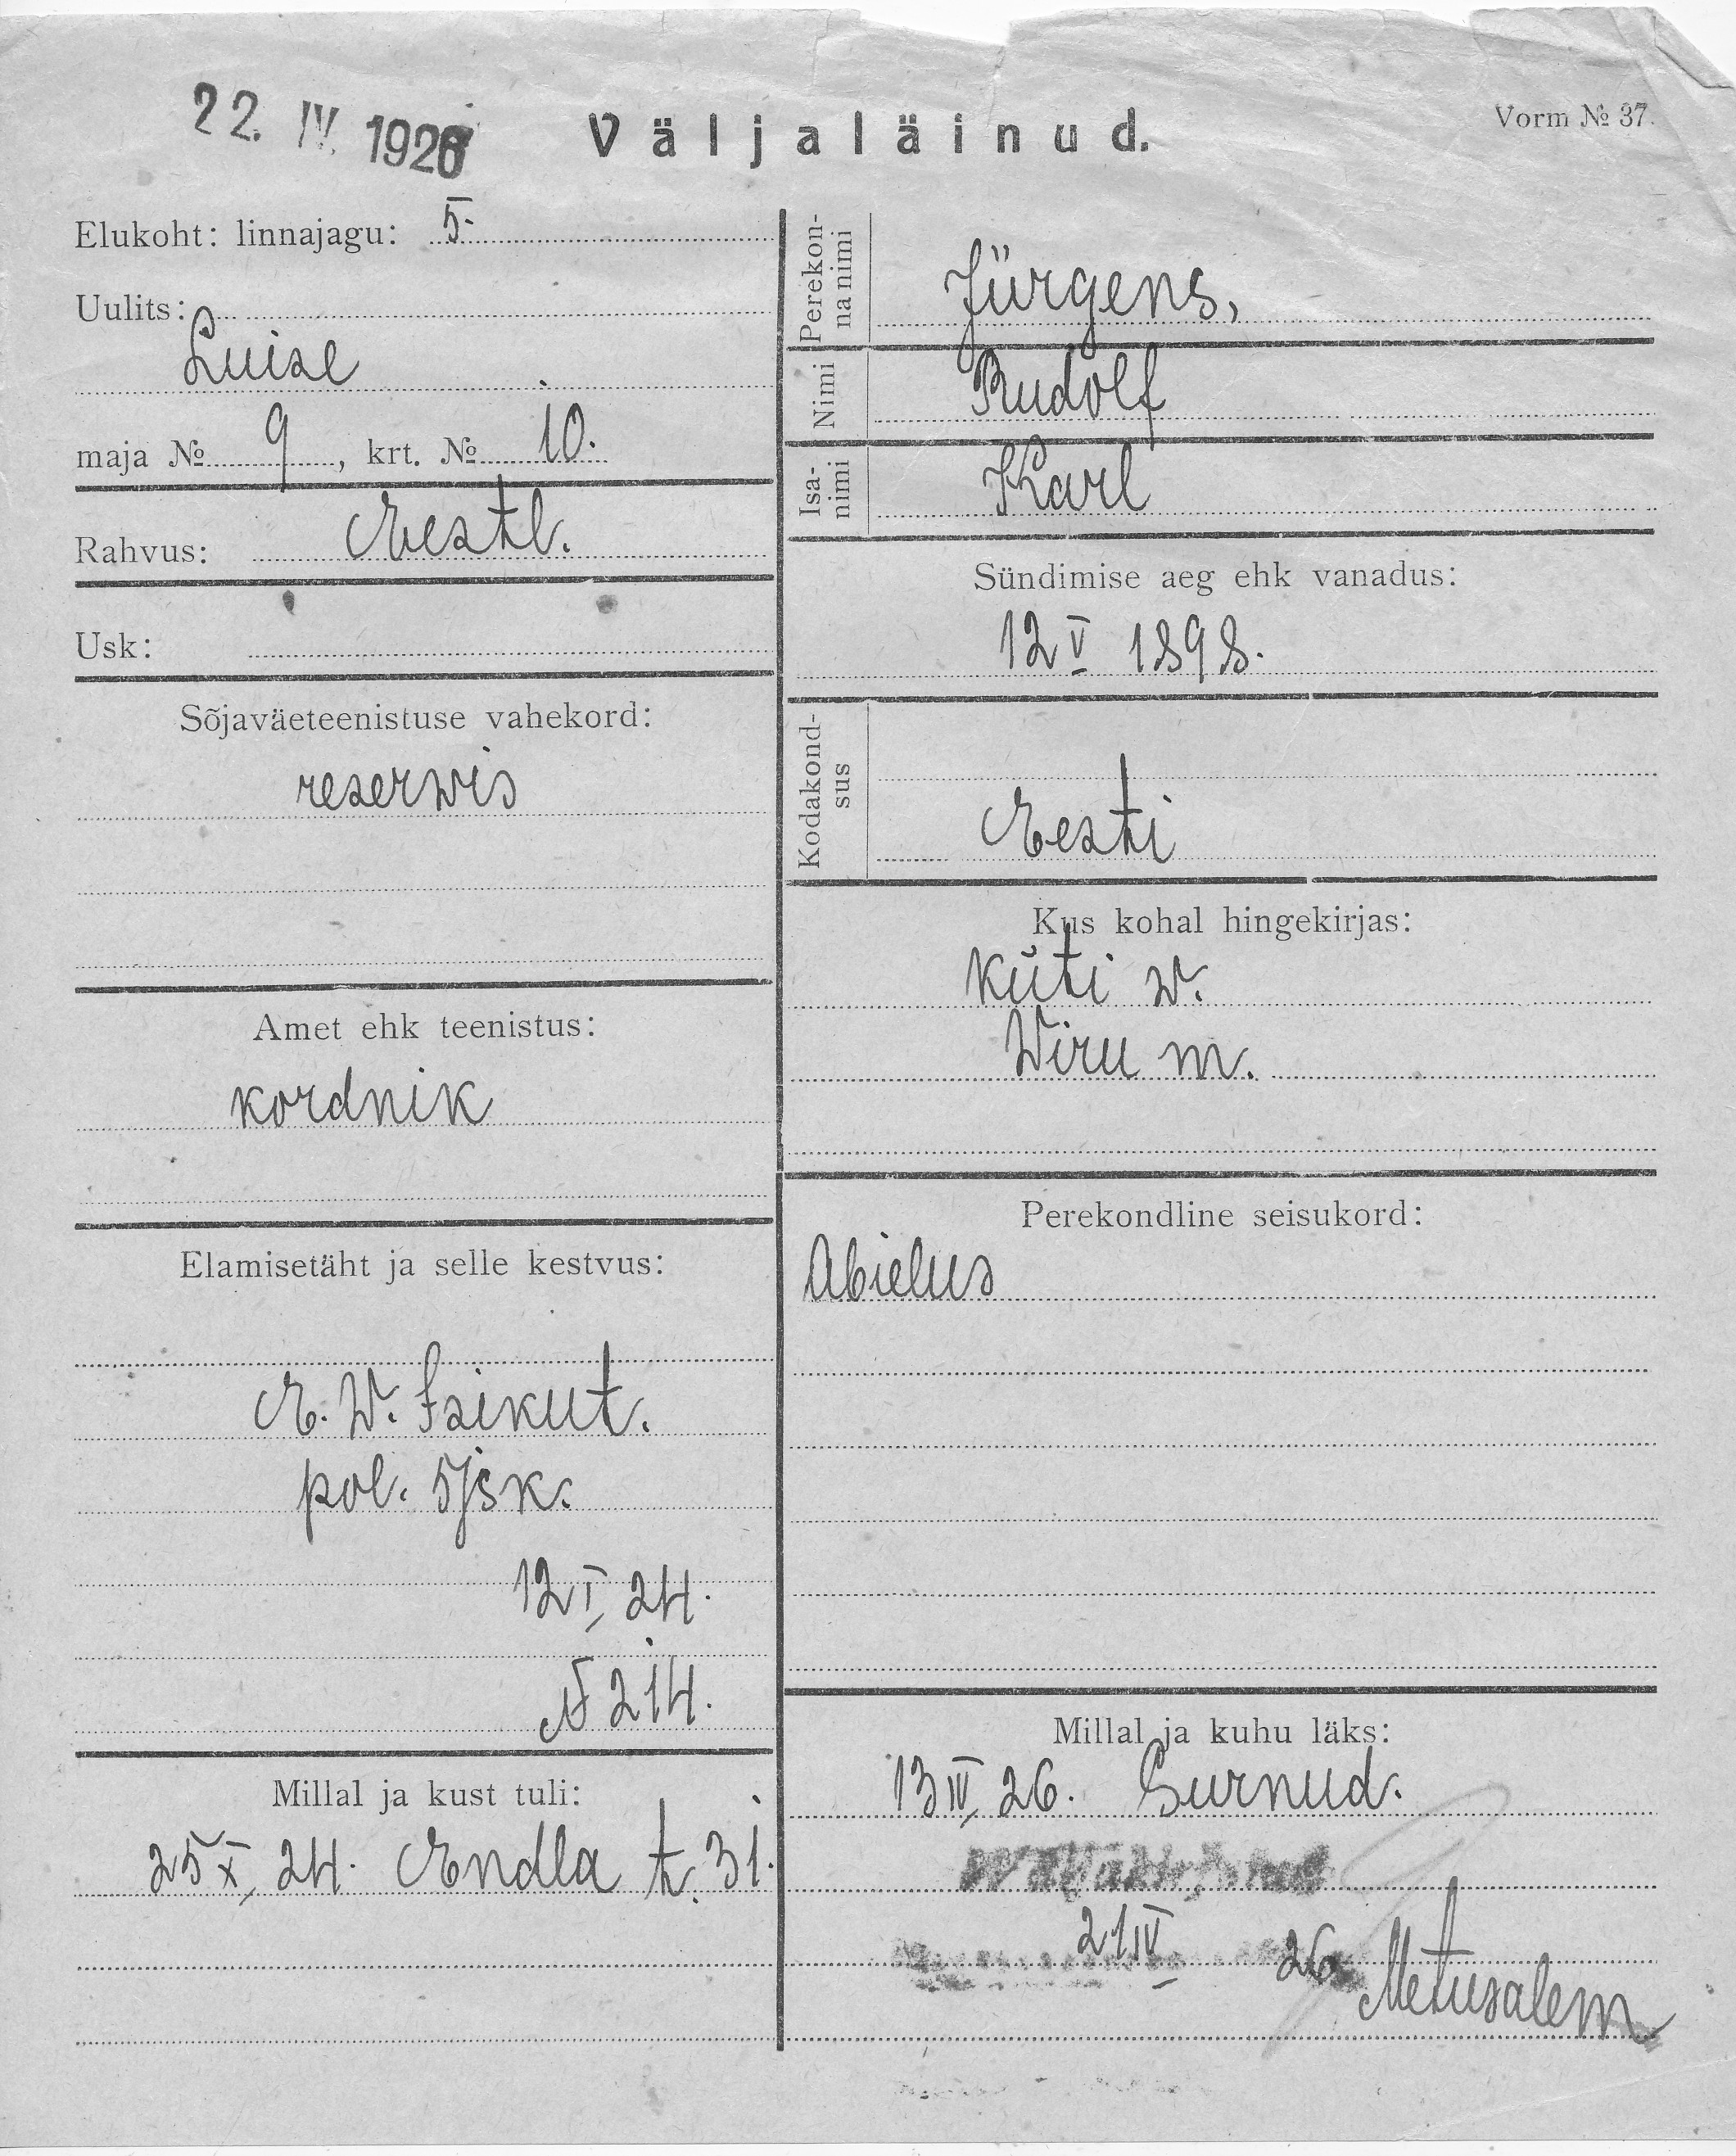 22. IV. 1926
Väljaläinud.
Vorm № 37.
Elukoht: linnajagu: 5.
Uulits:
Luise
maja № 9, krt. № 10.
Rahvus: Eestl.
Usk:
Sõjaväeteenistuse vahekord:
reserwis
Amet ehk teenistus:
kordnik
Elamisetäht ja selle kestvus:
E. W. Isikut.
pol. 5 jsk.
12 I 24.
№ 214.
Millal ja kust tuli:
25 X 24. Endla t. 31.
Perekon-
na nimi
Jürgens,
Nimi
Rudolf
Isa-
nimi
Karl
Sündimise aeg ehk vanadus:
12 V 1898.
Kodakond-
sus
Eesti
Kus kohal hingekirjas:
Küti w.
Wiru m.
Perekondline seisukord:
Abielus
Millal ja kuhu läks:
13 IV 26. Surnud.
21 IV 26
Metusalem